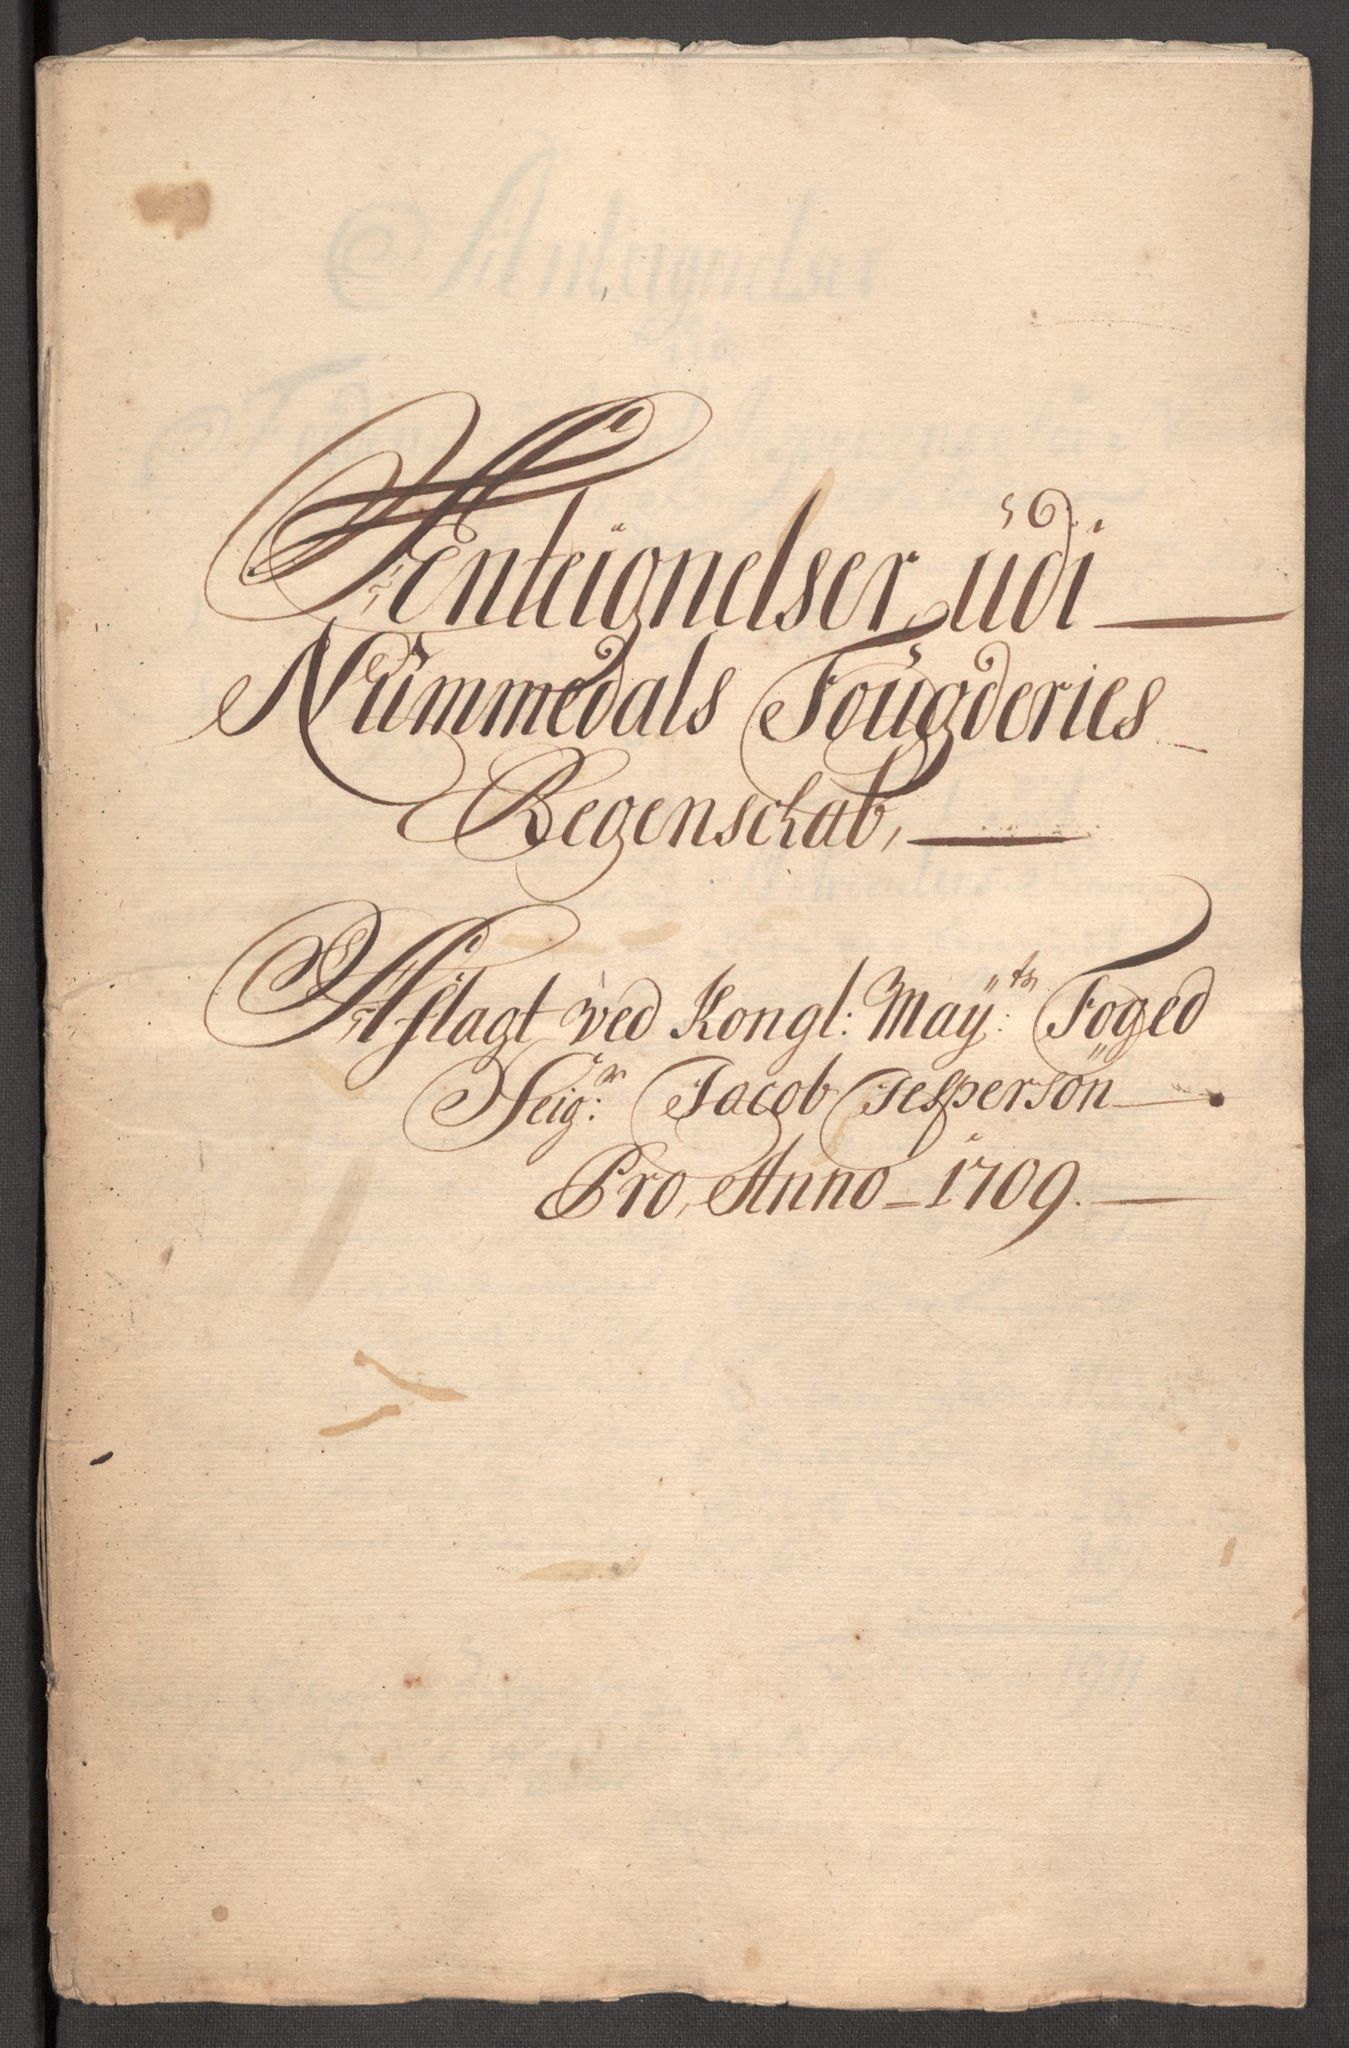 Ænteignelser, udi
Nummedals Fougderies
Regenschab,
Aflagt ved Kongl: Mayts: Foged
Seigr: Jacob Jesperson
Pro, Anno 1709.